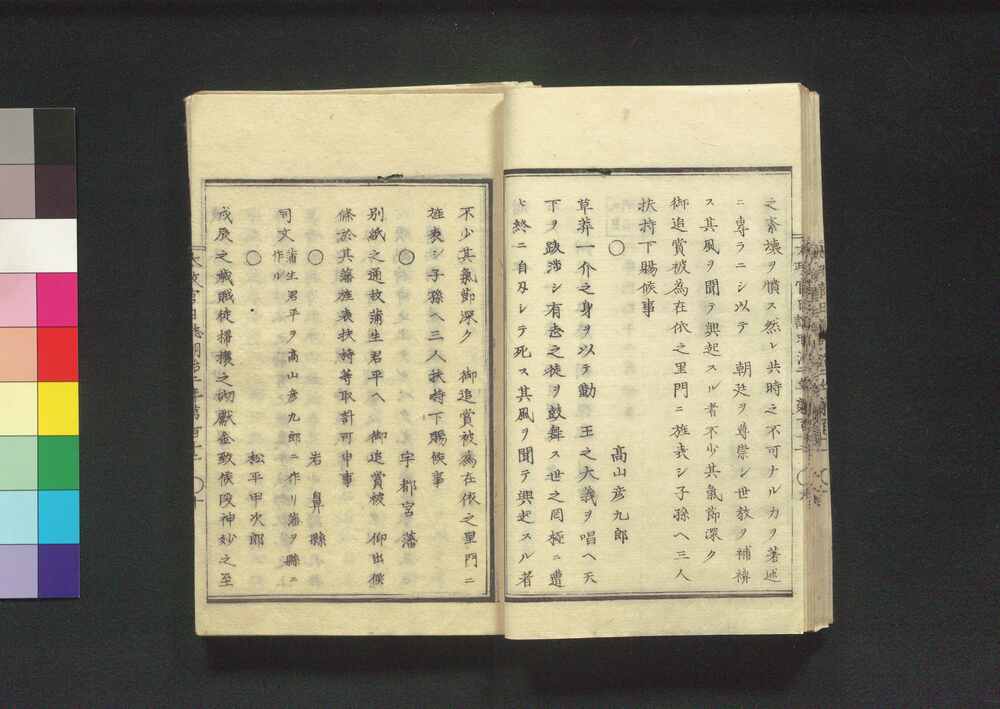 之紊壊ヲ憤ス然レ共時之不可ナルカヲ著述
ニ専ラニシ以テ　朝廷ヲ尊崇シ世教ヲ補裨
ス其風ヲ聞テ興起スル者不少其氣節深ク
御追賞被為在依之里門ニ旌表シ子孫へ三人
扶持下賜候事
○　高山彦九郎
草莽一介之身ヲ以テ勤　王之大義ヲ唱へ天
下ヲ跋渉シ有志之徒ヲ鼓舞ス世之罔極ニ遭
ヒ終ニ自刃シテ死ス其風ヲ聞テ興起スル者
不少其氣節深ク　御追賞被為在依之里門ニ
旌表シ子孫へ三人扶持下賜候事
○　宇都宮藩
別紙之通故蒲生君平へ　御追賞被　仰出候
條於其藩旌表扶持等取計可申事
○　岩鼻縣
同文蒲生君平ヲ高山彦九郎ニ作リ藩ヲ縣ニ
作ル
○　松平甲次郎
戊辰之歳賊徒掃攘之砌獻金致候段神妙之至
太政官日誌明治二年第百十二